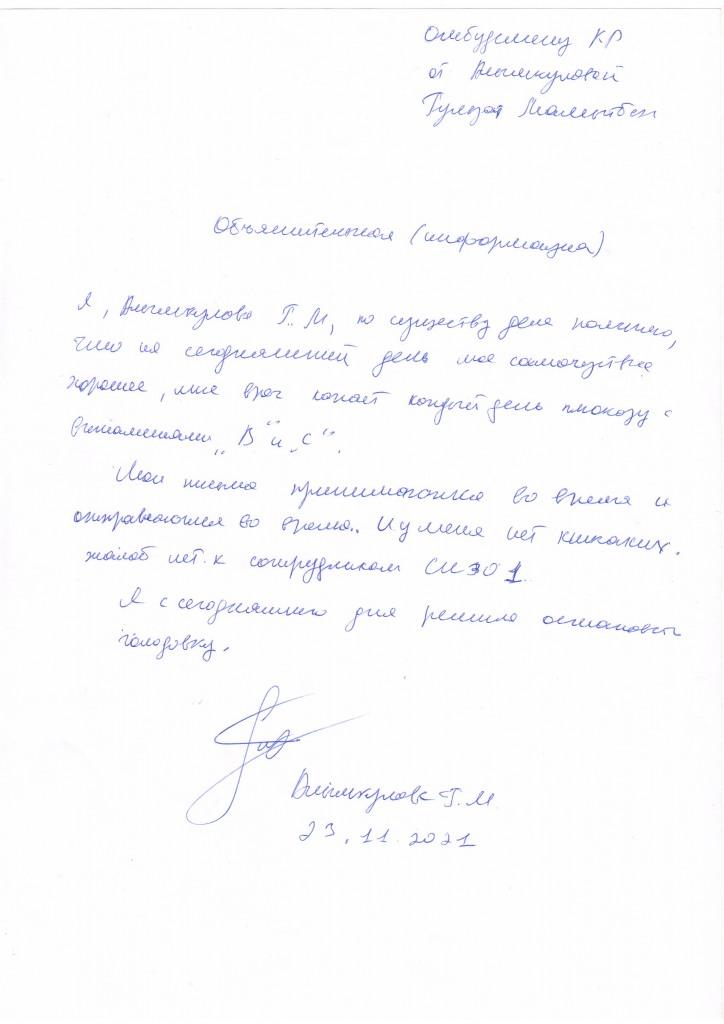 Омбудсмену КР
от Алымкуловой
Гулзат Мамытбек
Объяснительная (информация)
Я, Алымкулова Г. М, по существу дела поясняю,
что на сегодняшний день мое самочувствие
хорошее, мне врач капает каждый день глюкозу с
витаминами „В" и „С".
Мои письма принимаются во время и
отправляются во время. И у меня нет никаких.
жалоб нет. к сотрудникам СИЗО 1.
Я с сегодняшнего дня решила остановить
голодовку.
Алымкулова Г. М.
23.11.2021